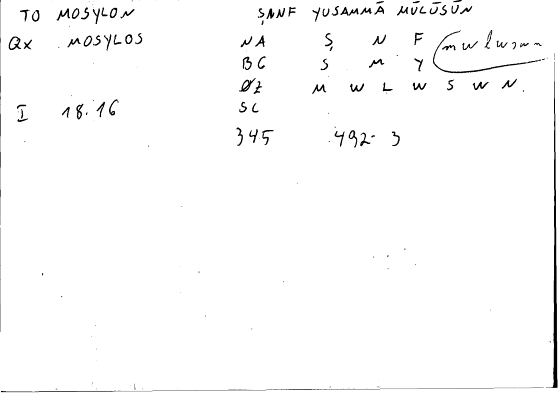 TO MOSYLON ṢINF YUSAMMĀ MŪLŪSŪN
Qx MOSYLOS NA Ṣ N F
BC S M Y
ØZ M W L W S W N.
I 18.16 SC
345 492-3